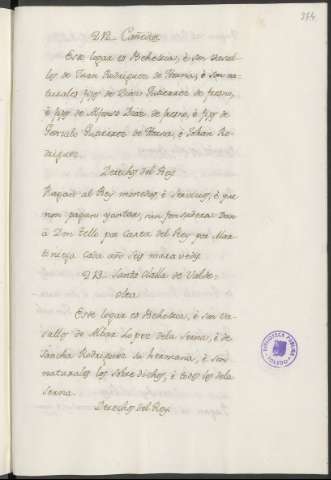 374.
DB. Cañedo
Este logar es Behetria, é son vasal-
los de Juan Rodriguez de
turales fijos de Diego Gutierrez de
é fijos de Alfonso Diaz de é fijos de
Gonzalo Gutierrez de é Johan Ro-
driguez.
Derechos del Rey
Pagan al Rey monedas, é servicios, é que
non pagan yantar, nin fonsadera: Dan
á Don Tello por Carta del Rey por Mar-
tiniega cada año seis maravedis
DB. Santa Olalla de Valde-
olea
Este logar es Behetria, é son va-
sallos de Albar Lopez dela Serna, é de
Sancha Rodriguez su hermana, é son
naturales los sobredichos, é todos los dela
Serna
Derechos del Rey.
BIBLIOTECA PUBLICA
TOLEDO